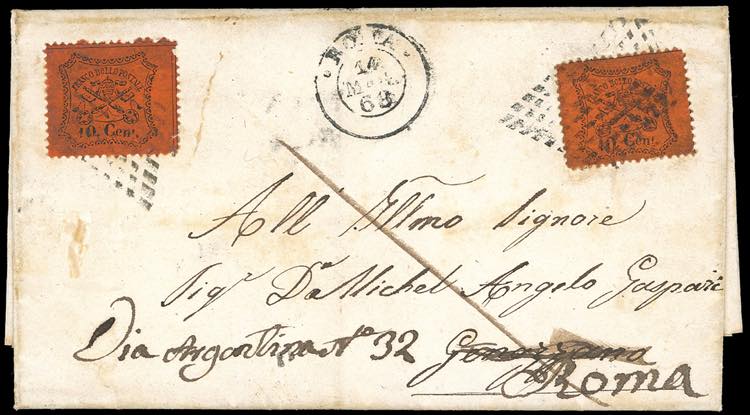 FRANCO BOLLO POSTALE
10. Cent.
ROMA
14
68
FRANCO BOLLO
10. Cent.
All' Illmo Signore
Sigr. Dn Michel Angelo Gaspari
Via Argentina No 32 Genazzano
Roma